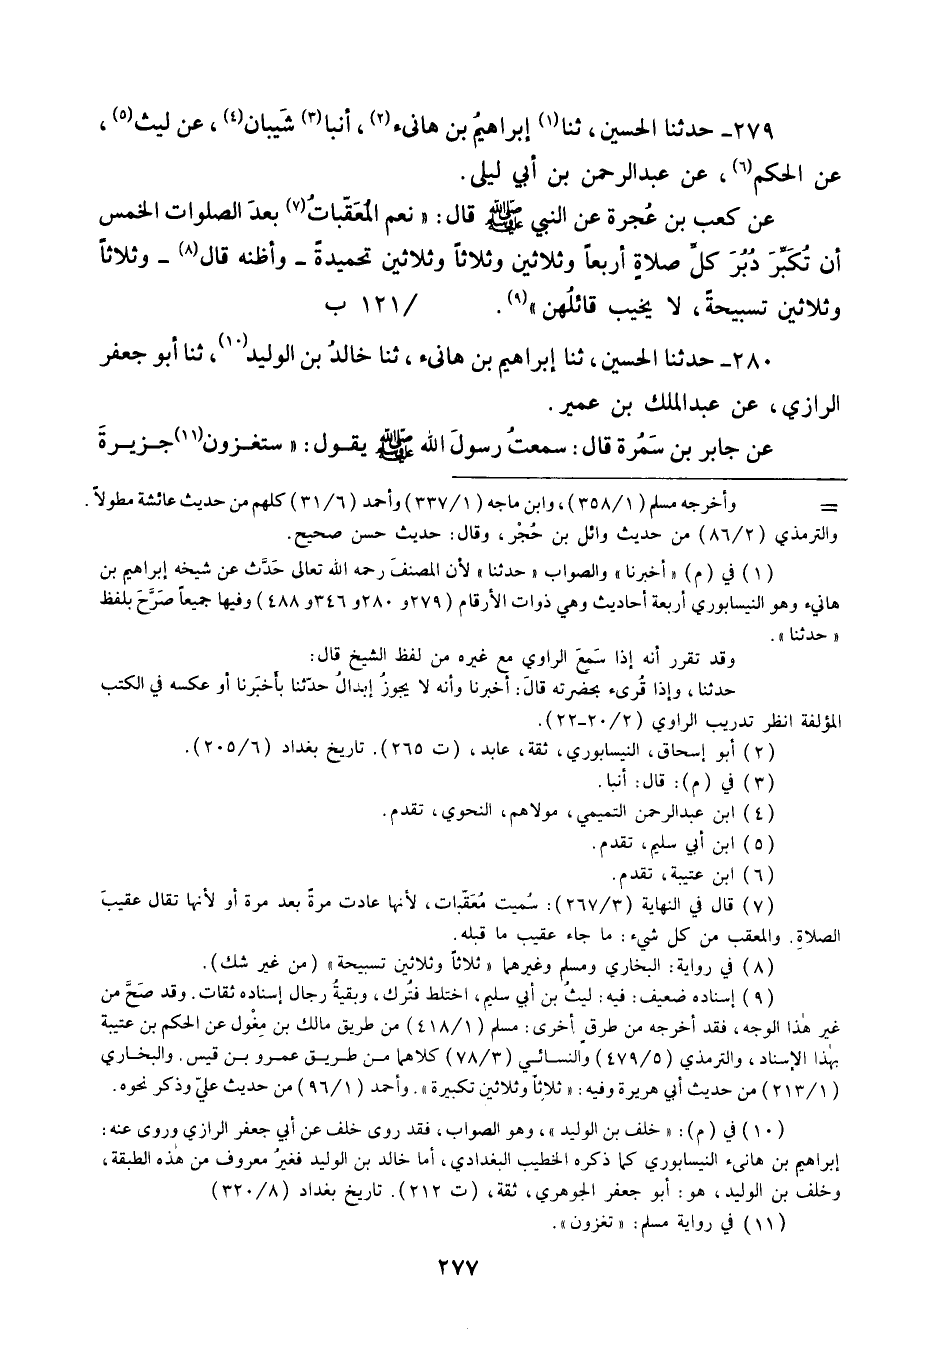 ٢٧٩ـ حدثنا الحسين، ثنا(١) إبراهيمُ بن هانىء(٢)، أنبا(٣) شَيبان(٤)، عن ليث(٥)،
عن الحكم(٦)، عن عبدالرحمن بن أبي ليلى.
عن كعب بن عُجرة عن النبي ﷺ قال: «نعم المُعَقّباتُ(٧) بعدَ الصلوات الخمس
أن تُكَبِّرَ دُبُرَ كلِّ صلاةٍ أربعاً وثلاثين وثلاثاً وثلاثين تحميدةً ـ وأظنه قال(٨) ـ وثلاثاً
وثلاثين تسبيحةً، لا يخيب قائلُهن»(٩). /١٢١ ب
٢٨٠ـ حدثنا الحسين، ثنا إبراهيم بن هانىء، ثنا خالدُ بن الوليد(١٠)، ثنا أبو جعفر
الرازي، عن عبدالملك بن عمير.
عن جابر بن سَمُرة قال: سمعتُ رسولَ الله ﷺ يقول: «ستغزون(١١) جزيرةَ
= وأخرجه مسلم (٣٥٨/١)، وابن ماجه (٣٣٧/١) وأحمد (٣١/٦) كلهم من حديث عائشة مطولاً.
والترمذي (٨٦/٢) من حديث وائل بن حُجْر، وقال: حديث حسن صحيح.
(١) في (م) «أخبرنا» والصواب «حدثنا» لأن المصنفَ رحمه الله تعالى حَدَّث عن شيخه إبراهيم بن
هانىء وهو النيسابوري أربعة أحاديث وهي ذوات الأرقام (٢٧٩و ٢٨٠و ٣٤٦و ٤٨٨) وفيها جميعاً صَرَّحَ بلفظ
«حدثنا».
وقد تقرر أنه إذا سَمِعَ الراوي مع غيره من لفظ الشيخ قال:
حدثنا، وإذا قُرىء بحضرته قالَ: أخبرنا وأنه لا يجوزُ إبدالُ حدّثنا بأخبَرنا أو عكسه في الكتب
المؤلفة انظر تدريب الراوي (٢٠/٢-٢٢).
(٢) أبو إسحاق، النيسابوري، ثقة، عابد، (ت ٢٦٥). تاريخ بغداد (٢٠٥/٦).
(٣) في (م): قال: أنبا.
(٤) ابن عبدالرحمن التميمي، مولاهم، النحوي، تقدم.
(٥) ابن أبي سليم، تقدم.
(٦) ابن عتيبة، تقدم.
(٧) قال في النهاية (٢٦٧/٣): سُميت مُعَقّبات، لأنها عادت مرةً بعد مرة أو لأنها تقال عقيبَ
الصلاةِ. والمعقب من كل شيء: ما جاء عقيب ما قبله.
(٨) في رواية: البخاري ومسلم وغيرهما «ثلاثاً وثلاثين تسبيحة» (من غير شك).
(٩) إسناده ضعيف: فيه: ليثُ بن أبي سليم، اختلط فتُرك، وبقيةُ رجال إسناده ثقات. وقد صَحَّ من
غير هٰذا الوجه، فقد أخرجه من طرقٍ أخرى: مسلم (٤١٨/١) من طريق مالك بن مِغْول عن الحكم بن عتيبة
بهٰذا الإسناد، والترمذي (٤٧٩/٥) والنسائي (٧٨/٣) كلاهما من طريق عمرو بن قيس. والبخاري
(٢١٣/١) من حديث أبي هريرة وفيه: «ثلاثاً وثلاثين تكبيرة». وأحمد (٩٦/١) من حديث عليّ وذكر نحوه.
(١٠) في (م): «خلف بن الوليد»، وهو الصواب، فقد روى خلف عن أبي جعفر الرازي وروى عنه:
إبراهيم بن هانىء النيسابوري كما ذكره الخطيب البغدادي، أما خالد بن الوليد فغيرُ معروف من هٰذه الطبقة،
وخلف بن الوليد، هو: أبو جعفر الجوهري، ثقة، (ت ٢١٢). تاريخ بغداد (٣٢٠/٨)
(١١) في رواية مسلم: «تغزون».
٢٧٧